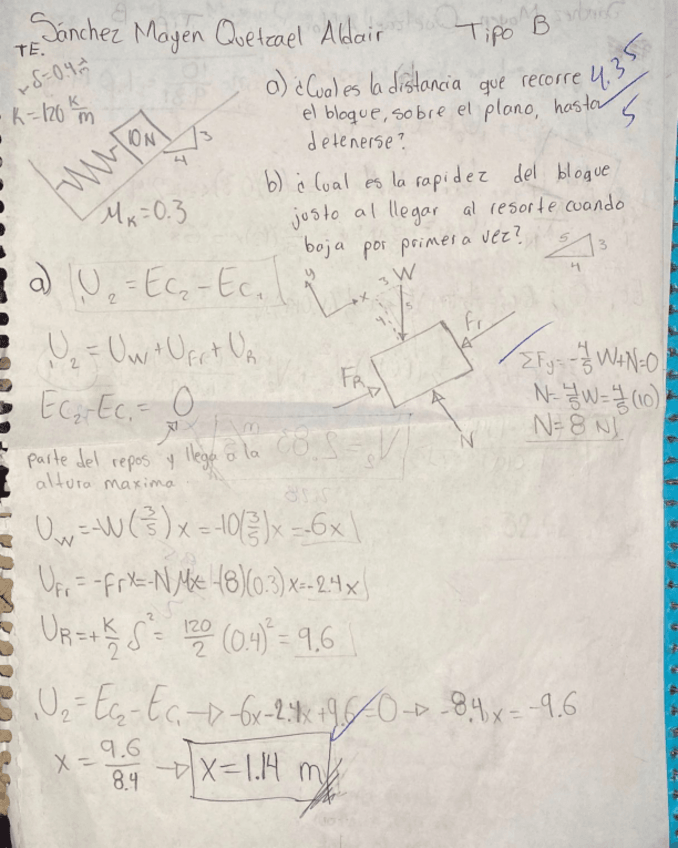 Sánchez Mayen Quetzael Aldair Tipo B
TE.
δ=0.4
K=120 K/m
10 N
3
4
Mk=0.3
a) ¿Cual es la distancia que recorre
el bloque, sobre el plano, hasta
detenerse?
4.35
5
b) ¿Cual es la rapidez del bloque
justo al llegar al resorte cuando
baja por primera vez?
5
3
4
a) 1U2 = Ec2 - Ec1
y
x
W
3
5
4
Fr
FR
N
1U2 = UW + UFr + UR
Ec2 - Ec1 = 0
parte del repos y llega a la
altura maxima.
ΣFy=-4/5 W+N=0
N=4/5 W=4/5 (10)
N=8 N
UW=-W(3/5)x=-10(3/5)x=-6x
UFr=-Frx=-NMkx=-(8)(0.3)x=-2.4x
UR=+K/2 δ²= 120/2 (0.4)²= 9.6
1U2=Ec2-Ec1→-6x-2.4x+9.6=0→-8.4x=-9.6
x= 9.6/8.4 → x=1.14 m